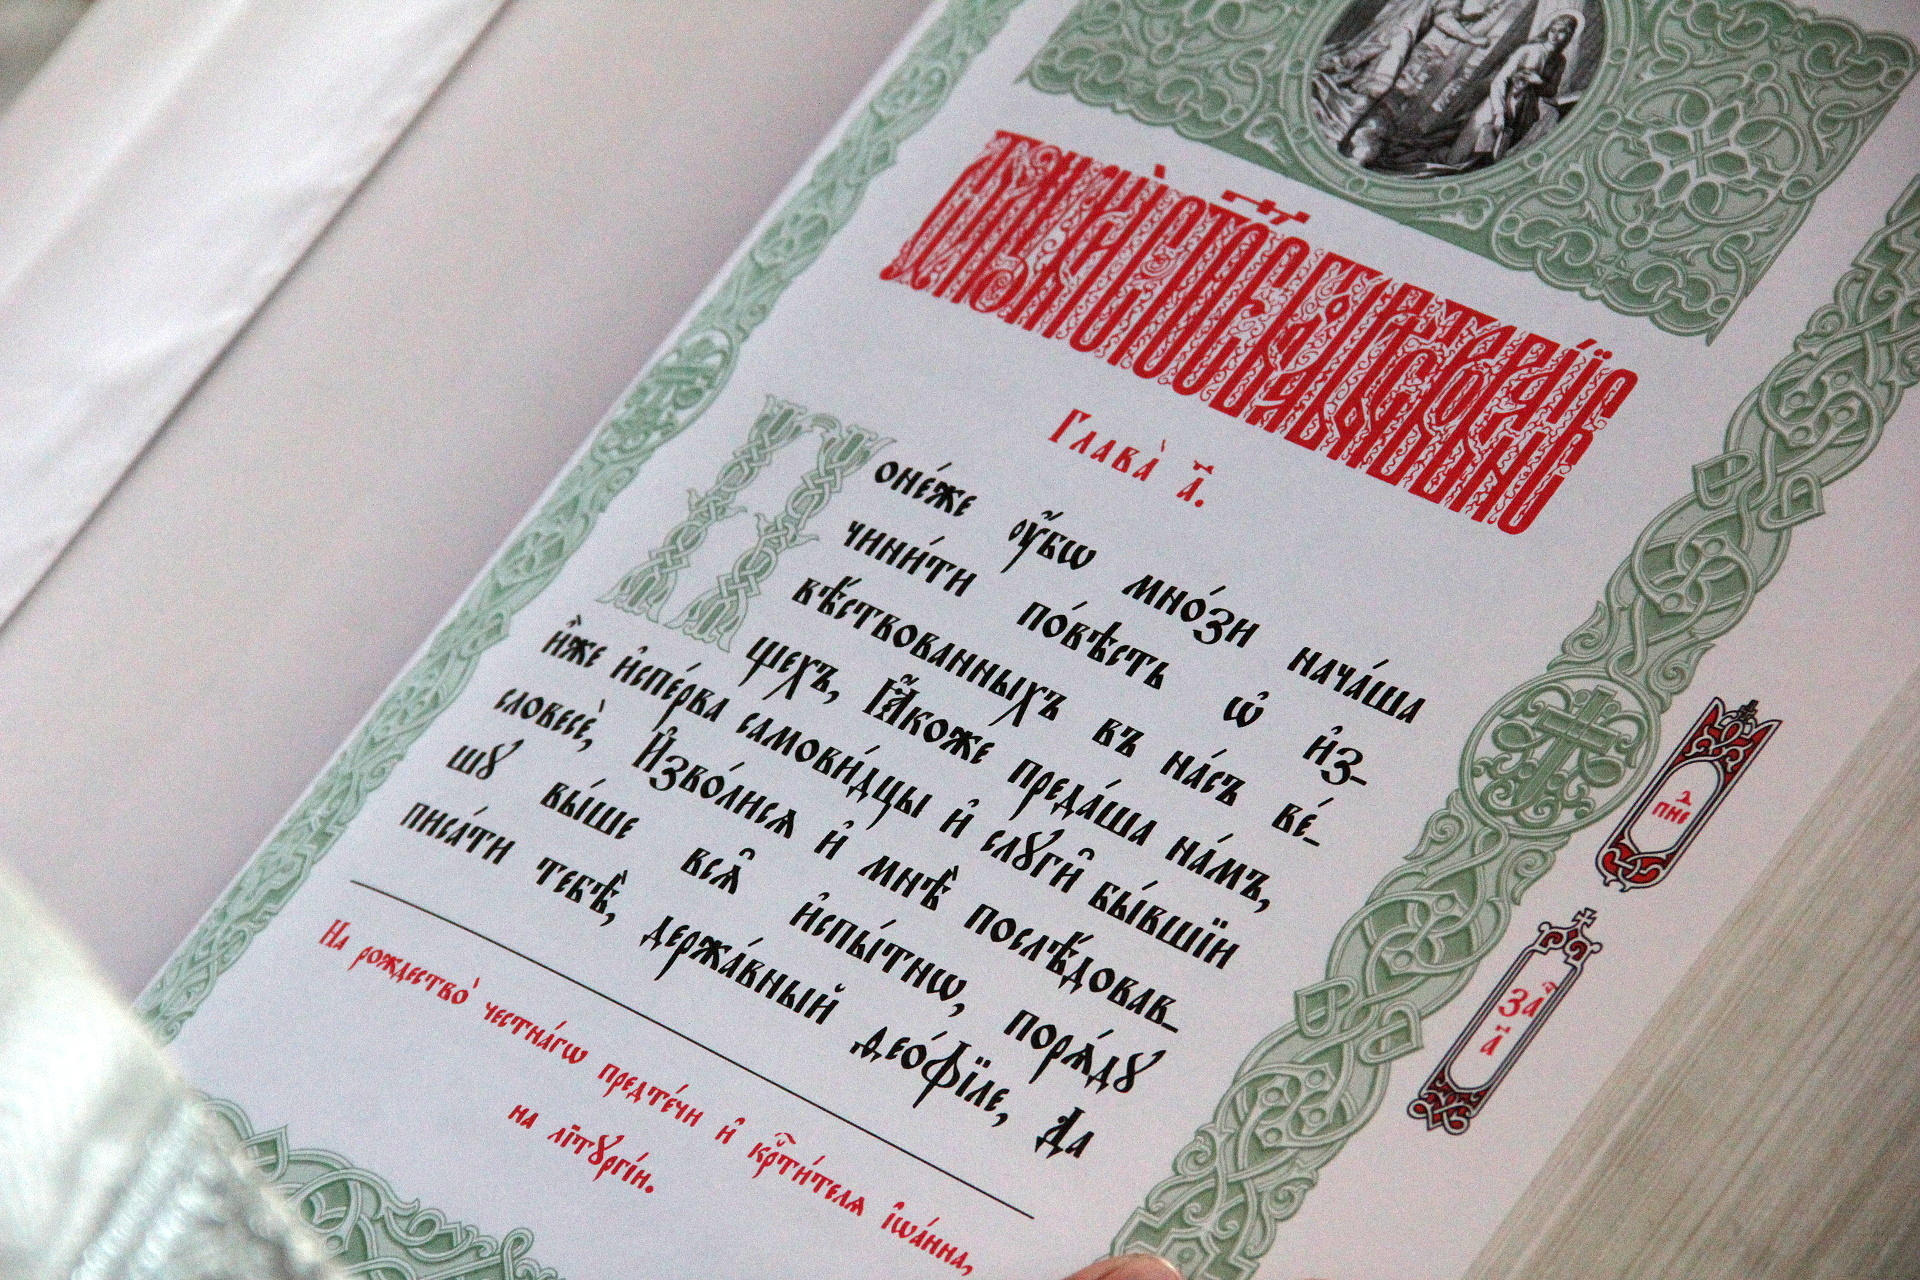 Глава̀ а҃.
Поне́же ᲂу҆́бѡ мно́зи нача́ша
чини́ти по́вѣсть ѡ҆ и҆з_
вѣ́ствованныхъ въ на́съ ве́_
щехъ, Ꙗ҆́коже преда́ша на́мъ,
и҆̀же и҆спе́рва самови́дцы и҆ слꙋги̑ бы́вшїи
словесѐ, И҆зво́лисѧ и҆ мнѣ̀ послѣ́довав_
шꙋ вы́ше всѧ̑ и҆спы́тнѡ, порѧ́дꙋ
писа́ти тебѣ̀, держа́вный ѳео́фїле, Да
На рождество̀ честна́гѡ предте́чи и҆ крⷭ҇ти́телѧ і҆ѡа́нна,
на лїтꙋргі́и.
пнеⷣ
заⷱ
а҃